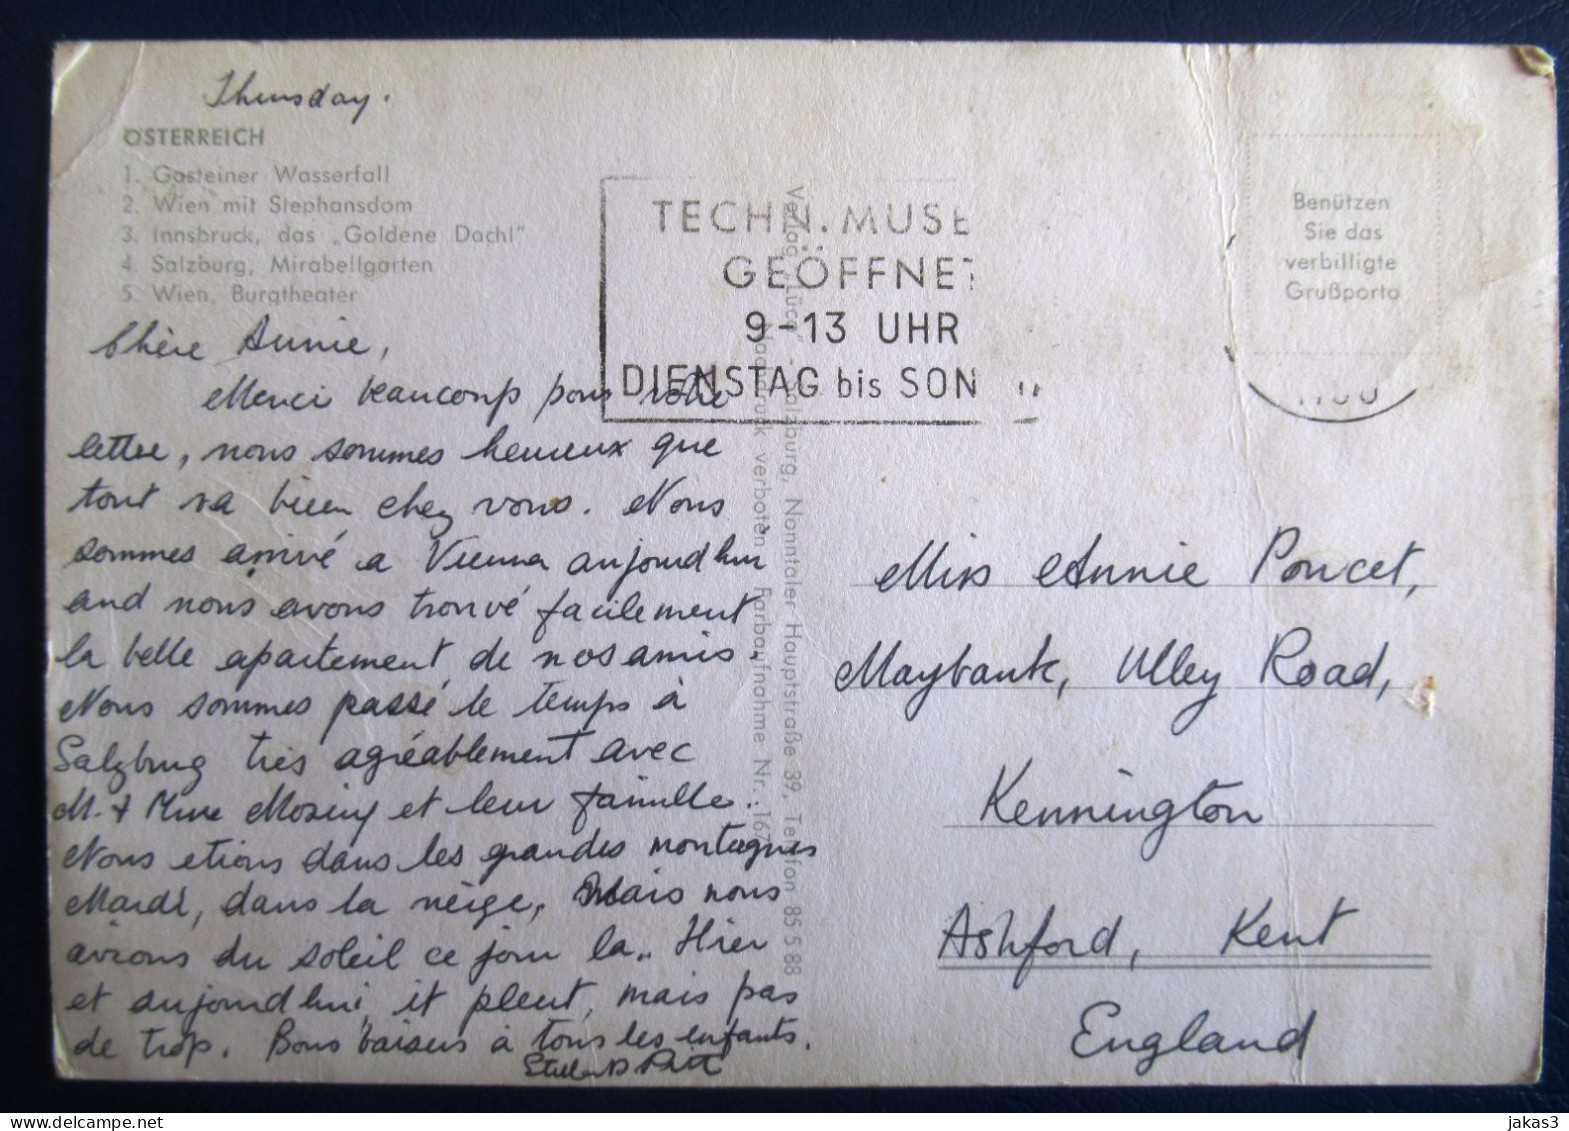 Thursday.
ÖSTERREICH
1. Gasteiner Wasserfall
2. Wien mit Stephansdom
3. Innsbruck, das „Goldene Dachl"
4. Salzburg, Mirabellgarten
5. Wien, Burgtheater
Chère Annie,
Merci beaucoup pour votre
lettre, nous sommes heureux que
tout va bien chez vous. Nous
sommes arrivé a Vienna aujourd hui
and nous avons trouvé facilement
la belle apartement de nos amis.
Nous sommes passé le temps à
Salzburg très agréablement avec
M. + Mme et leur famille..
Nous etions dans les grandes montagnes
Mardi, dans la neige, Mais nous
avions du soleil ce jour la.. Hier
et aujourd hui, it pleut, mais pas
de trop. Bons baisers à tous les enfants.
TECHN. MUSE
GEÖFFNET
9-13 UHR
DIENSTAG bis SON
Verlag „Lücq" - Salzburg, Nonntaler Hauptstraße 39, Telefon 85 5 88
Nachdruck verboten Farbaufnahme Nr. 167
Benützen
Sie das
verbilligte
Grußporto
Miss Annie Poncet,
Maybank, Ulley Road,
Kennington
Ashford, Kent
England
delcampe.net
jakas3